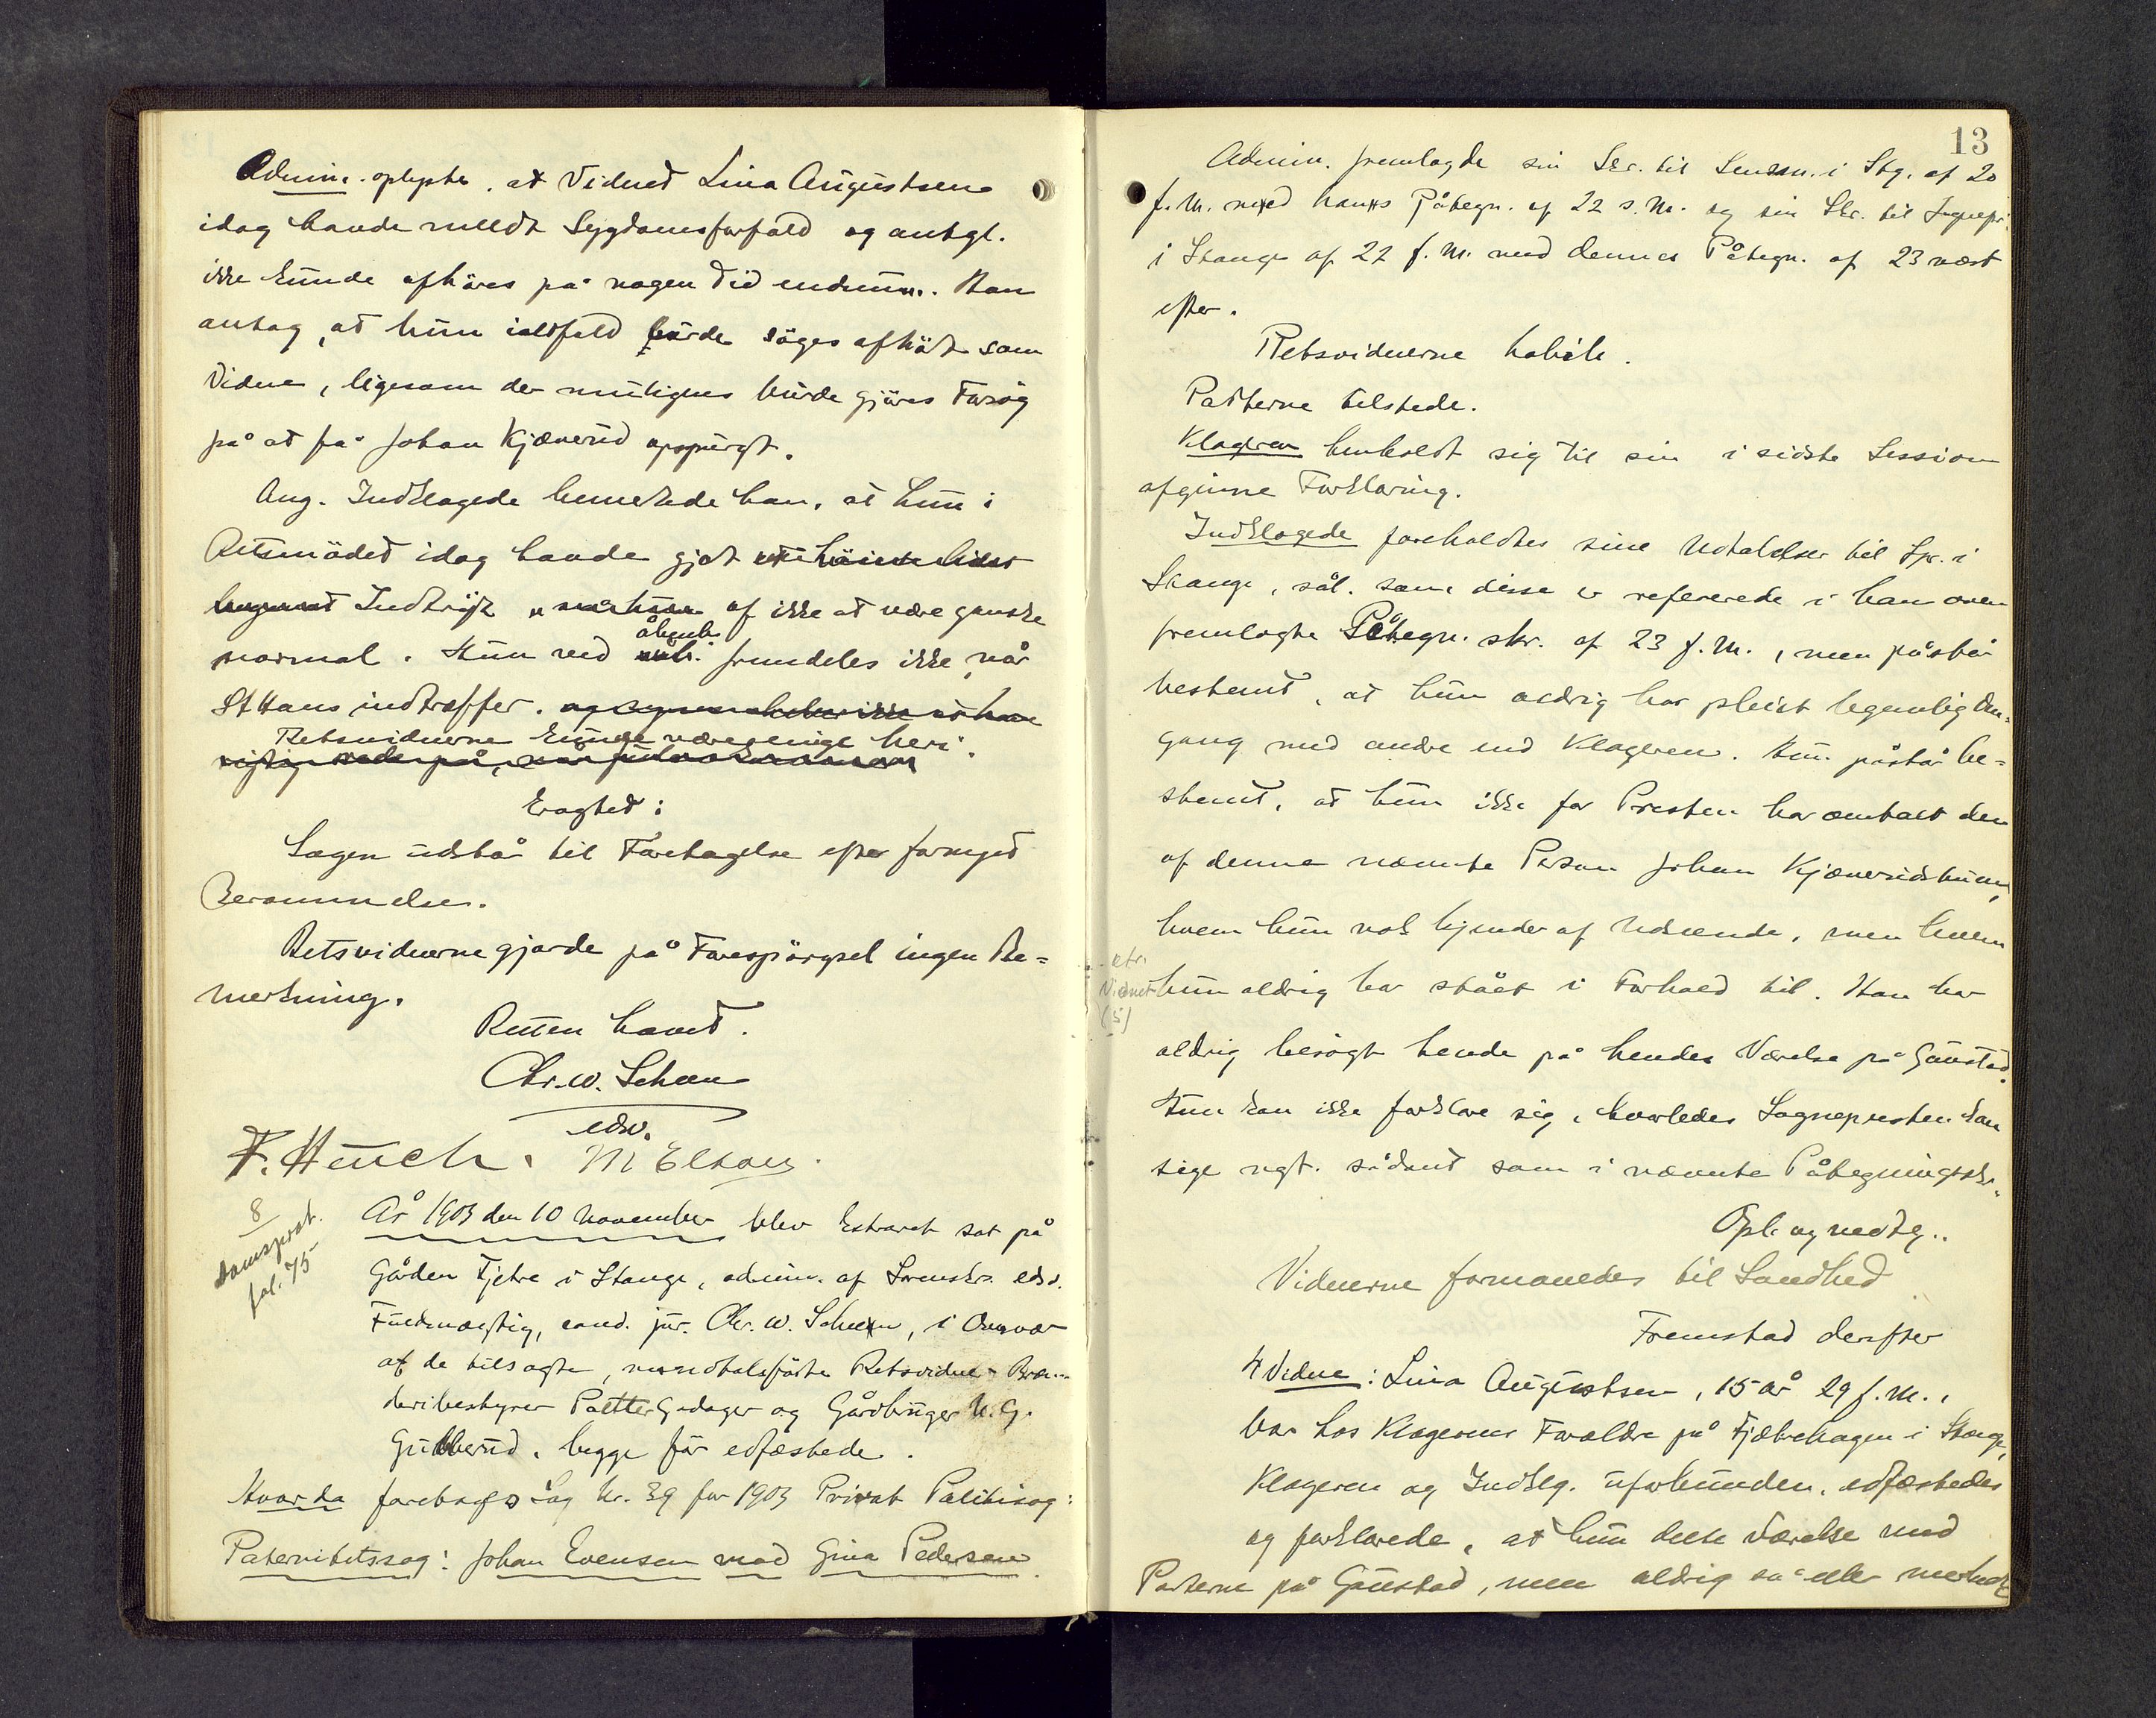 Admin. oplyste, at Vidnet Lina Augustsen
idag havde meldt Sygdomsforfald og antgl.
ikke kunde afhøres på nogen Tid endnu. Han
antog, at hun ialdfald burde søges afhørt som
Vidne, ligesom der muligens burde gjøres Forsøg
på at få Johan Kjønerud opspurgt.
Ang. Indklagede bemerkede han, at hun i
Retsmødet idag havde gjort
Indtryk af ikke at være ganske
normal. Hun ved åbenb. fremdeles ikke, når
St Hans indtræffer.
Retsvidnerne kunde være enige heri.
Eragtet:
Sagen udstår til Foretagelse efter fornyet
Berammelse.
Retsvidnerne gjorde på Forespørgsel ingen Be=
merkning.
Retten hævet.
Chr. W. Scheen
edsv.
F. Huuch. M Elton
8
Domsprot.
fol. 75
År 1903 den 10 November blev Extraret sat på
Gården Fjetre i Stange, admin. af Sorenskr. eds.
Fuldmægtig, cand. jur. Chr. W. Scheen, i Overvær
af de tilsagte, mandtalsførte Retsvidner Bræn-
deribestyrer Petter Gedager og Gårdbruger N. G.
Gubberud, begge før edfæstede.
Hvorda foretoges Sag Nr. 39 for 1903 Privat Politisag:
Paternitetssag: Johan Evensen mod Gina Pedersen.
13
Admin. fremlagde sin Skr. til Lensm. i Stg. af 20
f. M. med hans Påtegn. af 22 s. M. og sin Skr. til Sognepr.
i Stange af 22 f. M. med dennes Påtegn. af 23 næst
efter.
Retsvidnerne habile.
Parterne tilstede.
Klageren henholdt sig til sin i sidste Session
afgivne Forklaring.
Indklagede foreholdtes sine Udtalelser til Spr. i
Stange, sål. som disse er refererede i hans oven
fremlagte Påtegn. skr. af 23 f. M., men påstår
bestemt, at hun aldrig har pleiet legemlig Om=
gang med andre end Klageren. Hun påstår be=
stemt, at hun ikke for Presten har omtalt den
af denne nævnte Person Johan Kjønerudstuen,
hvem hun nok kjender af Udseende, men hvem
hun aldrig har stået i Forhold til. Han har
ctr.
Vidnet
(5)
aldrig besøgt hende på hendes Værelse på Gaustad.
Hun kan ikke forklare sig, hvorledes Sognepresten kan
sige ngt. sådant som i nævnte Påtegningsskr.
Opl. og vedtg..
Vidnerne formanedes til Sandhed
Fremstod derefter
4 Vidne: Lina Augustsen, 15 år 29 f. M.,
bor hos Klagerens Forældre på Fjætrehagen i Stange,
Klageren og Indklg. uforbunden, edfæstedes
og forklarede, at hun delte Værelse med
Parterne på Gaustad, men aldrig så eller merket